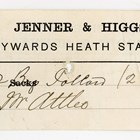 JENNER & HIGG
YWARDS HEATH STA
Sacks Pollard /2
Mr Attleo